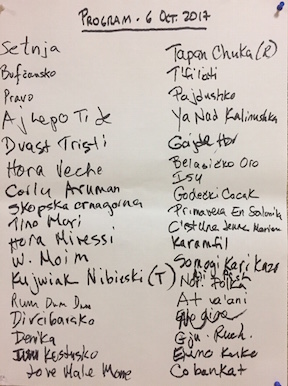 PROGRAM · 6 OCT. 2017
Setnja
Bufčansko
Pravo
Ajšepo Ti je
Dvast Tristi
Hora Veche
Corlu Aruman
Skopska crnagorna
Tino Mori
Hora Miresei
W. Moim
Kujwiak Nibieski (T)
Rum Dum Dum
Dircibarsko
Denika
Kustursko
Jove Male Mome
Tapan Chuka (R)
T'filati
Pajdushko
Ya Nad Kalinushka
Gajda Hor
Belasičko Oro
Godečki Čačak
Primavera En Salonika
C'est Une Jeune Mariee
Karamfil
Somogi Karikazo
Nor. Polka
At va'ani
Gju. Ruch.
Cobankat